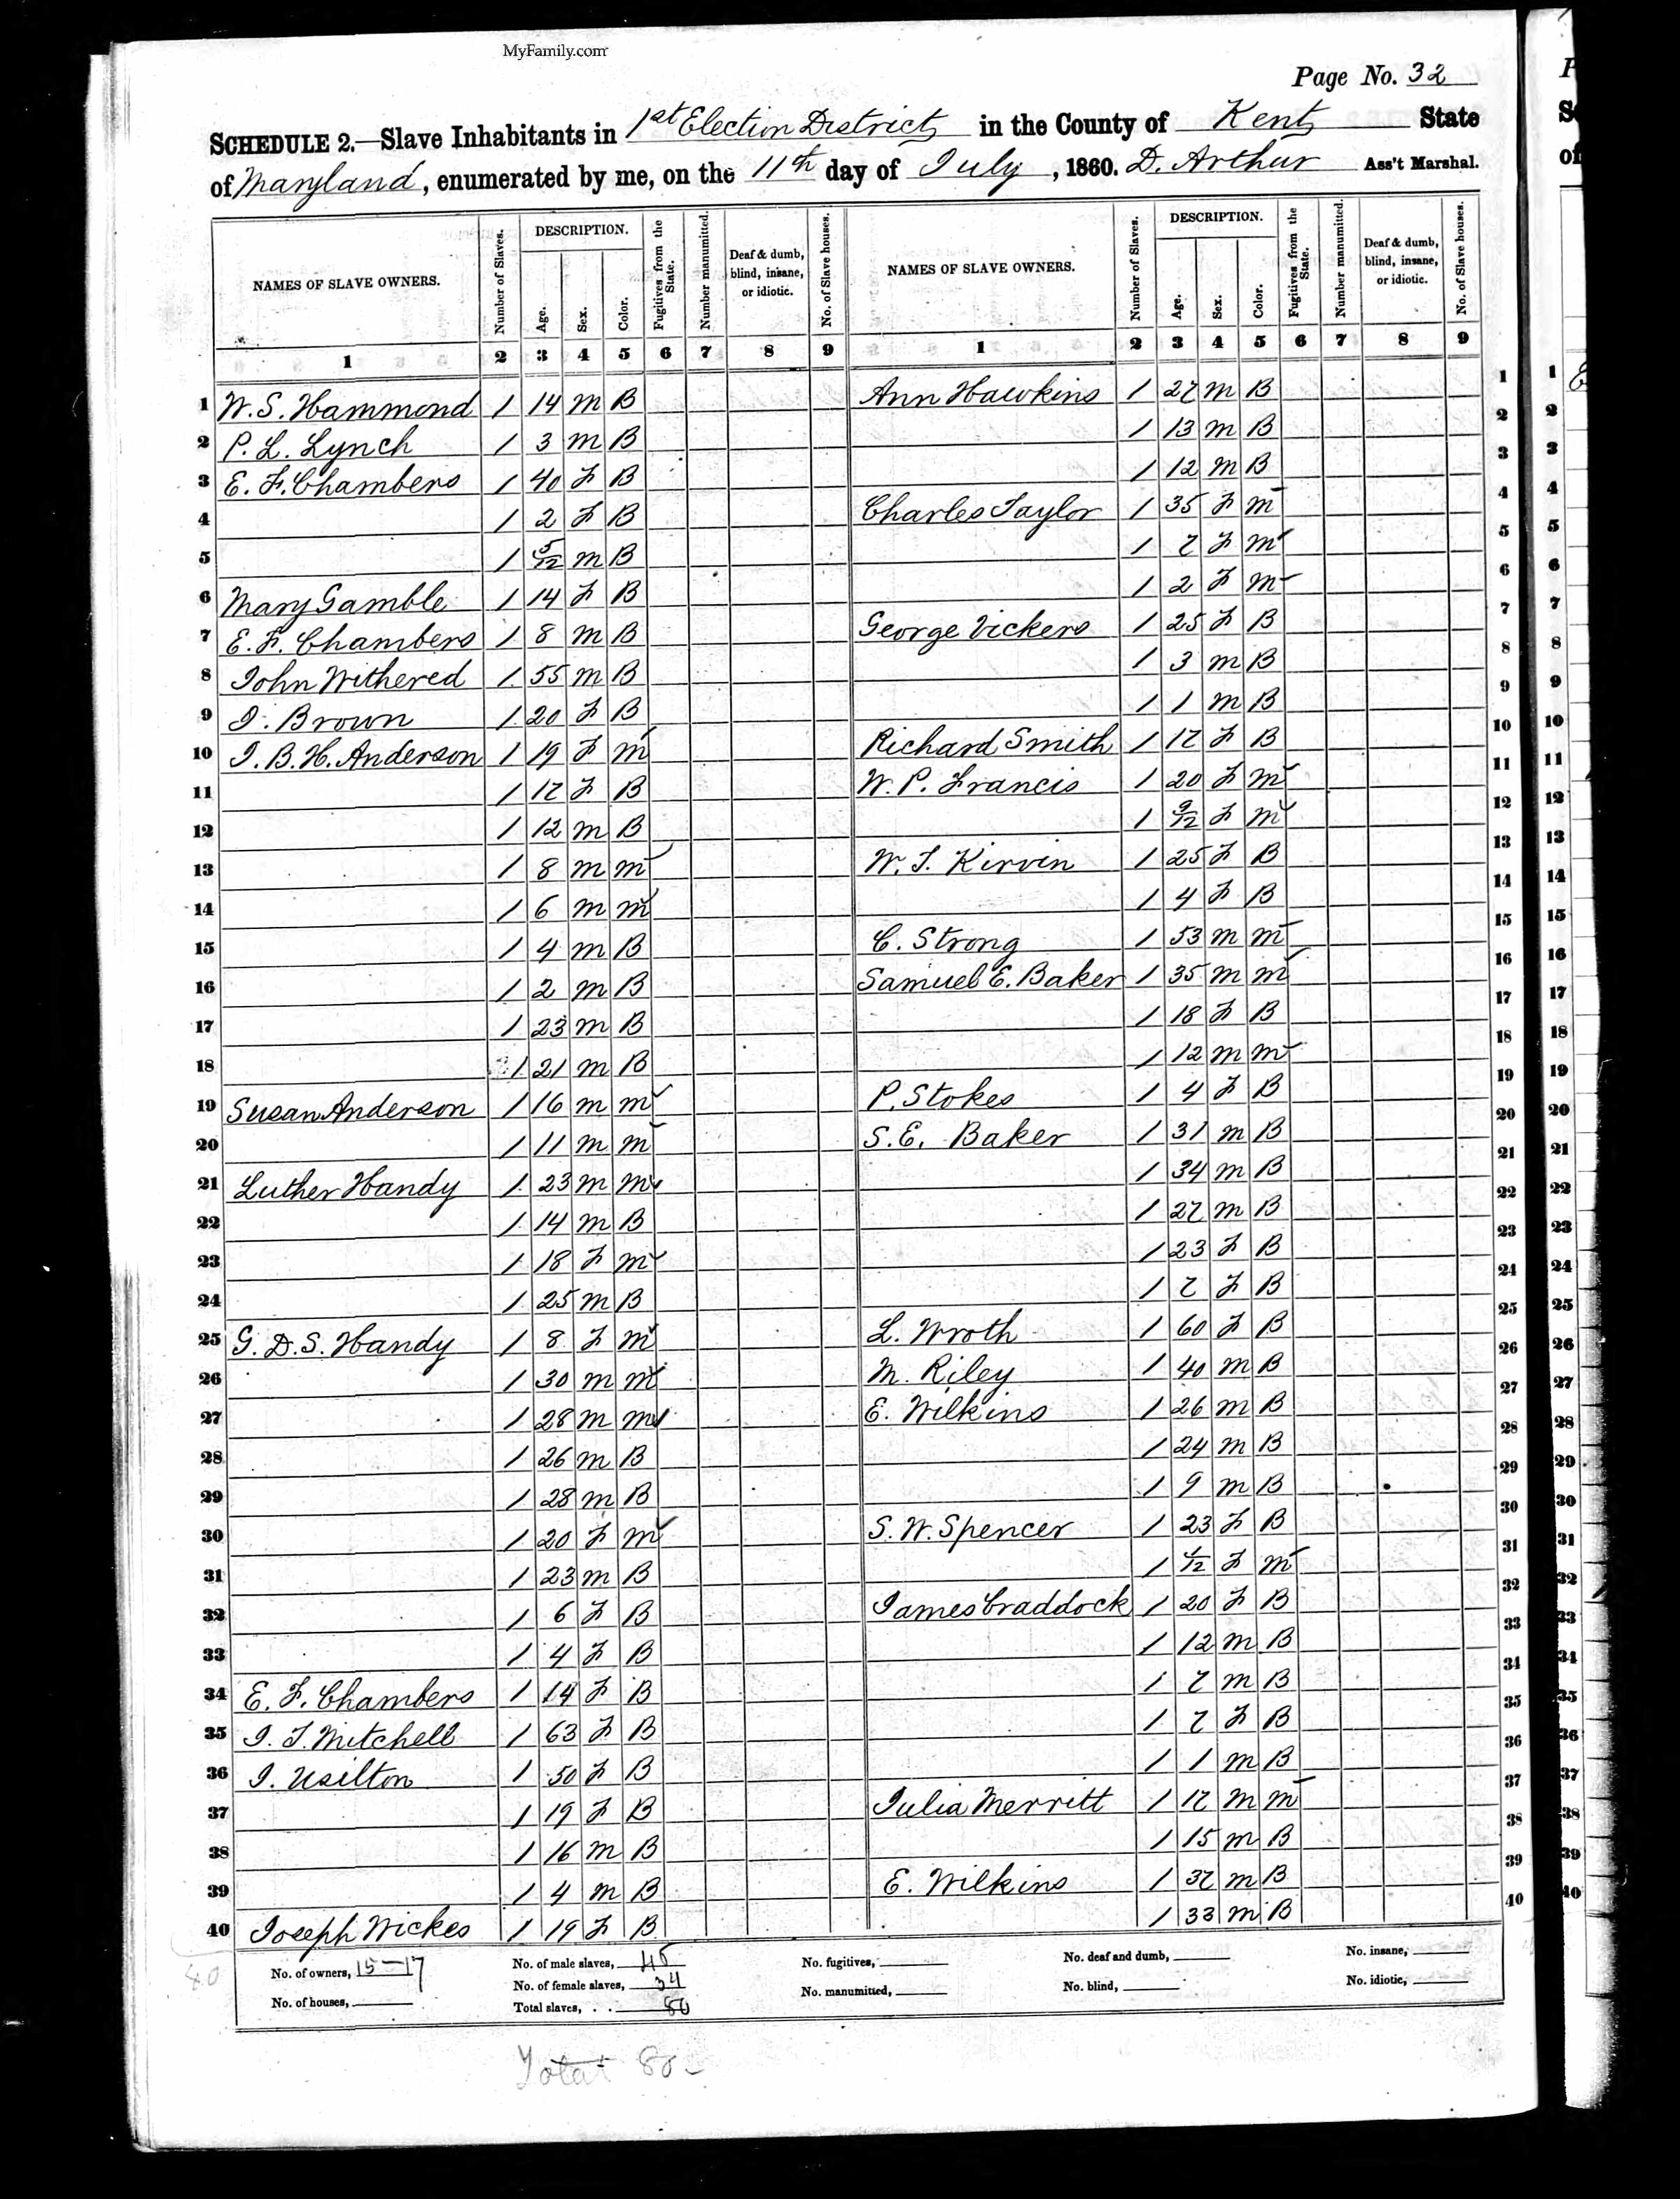 MyFamily.com
Page No. 32
SCHEDULE 2.—Slave Inhabitants in 1st Election District in the County of Kent State
of Maryland, enumerated by me, on the 11th day of July, 1860. D. Arthur Ass't Marshal.
NAMES OF SLAVE OWNERS. Number of Slaves. DESCRIPTION. Age. Sex. Color. Fugitives from the State. Number manumitted. Deaf & dumb, blind, insane, or idiotic. No. of Slave houses. NAMES OF SLAVE OWNERS. Number of Slaves. DESCRIPTION. Age. Sex. Color. Fugitives from the State. Number manumitted. Deaf & dumb, blind, insane, or idiotic. No. of Slave houses.
1 2 3 4 5 6 7 8 9 1 2 3 4 5 6 7 8 9
1 W. S. Hammond 1 14 m B Ann Hawkins 1 27 m B 1
2 P. L. Lynch 1 3 m B 1 13 m B 2
3 E. F. Chambers 1 40 F B 1 12 m B 3
4 1 2 F B Charles Taylor 1 35 F m 4
5 1 5/12 m B 1 7 F m 5
6 Mary Gamble 1 14 F B 1 2 F m 6
7 E. F. Chambers 1 8 m B George Vickers 1 25 F B 7
8 John Withered 1 55 m B 1 3 m B 8
9 J. Brown 1 20 F B 1 1 m B 9
10 J. B. H. Anderson 1 19 F m Richard Smith 1 17 F B 10
11 1 17 F B W. P. Francis 1 20 F m 11
12 1 12 m B 1 9/12 F m 12
13 1 8 m m W. T. Kirvin 1 25 F B 13
14 1 6 m m 1 4 F B 14
15 1 4 m B C. Strong 1 53 m m 15
16 1 2 m B Samuel E. Baker 1 35 m m 16
17 1 23 m B 1 18 F B 17
18 1 21 m B 1 12 m m 18
19 Susan Anderson 1 16 m m P. Stokes 1 4 F B 19
20 1 11 m m S. E. Baker 1 31 m B 20
21 Luther Handy 1 23 m m 1 34 m B 21
22 1 14 m B 1 27 m B 22
23 1 18 F m 1 23 F B 23
24 1 25 m B 1 7 F B 24
25 G. D. S. Handy 1 8 F m L. Wroth 1 60 F B 25
26 1 30 m m M. Riley 1 40 m B 26
27 1 28 m m E. Wilkins 1 26 m B 27
28 1 26 m B 1 24 m B 28
29 1 28 m B 1 9 m B 29
30 1 20 F m S. W. Spencer 1 23 F B 30
31 1 23 m B 1 1/12 F m 31
32 1 6 F B James Craddock 1 20 F B 32
33 1 4 F B 1 12 m B 33
34 E. F. Chambers 1 14 F B 1 7 m B 34
35 J. T. Mitchell 1 63 F B 1 7 F B 35
36 J. Usilton 1 50 F B 1 1 m B 36
37 1 19 F B Julia Merritt 1 17 m m 37
38 1 16 m B 1 15 m B 38
39 1 4 m B E. Wilkins 1 37 m B 39
40 Joseph Wickes 1 19 F B 1 33 m B 40
40 No. of owners, 15-17 No. of male slaves, No. fugitives, No. deaf and dumb, No. insane,
No. of houses, No. of female slaves, 34 No. manumitted, No. blind, No. idiotic,
Total slaves, 80
Total 80